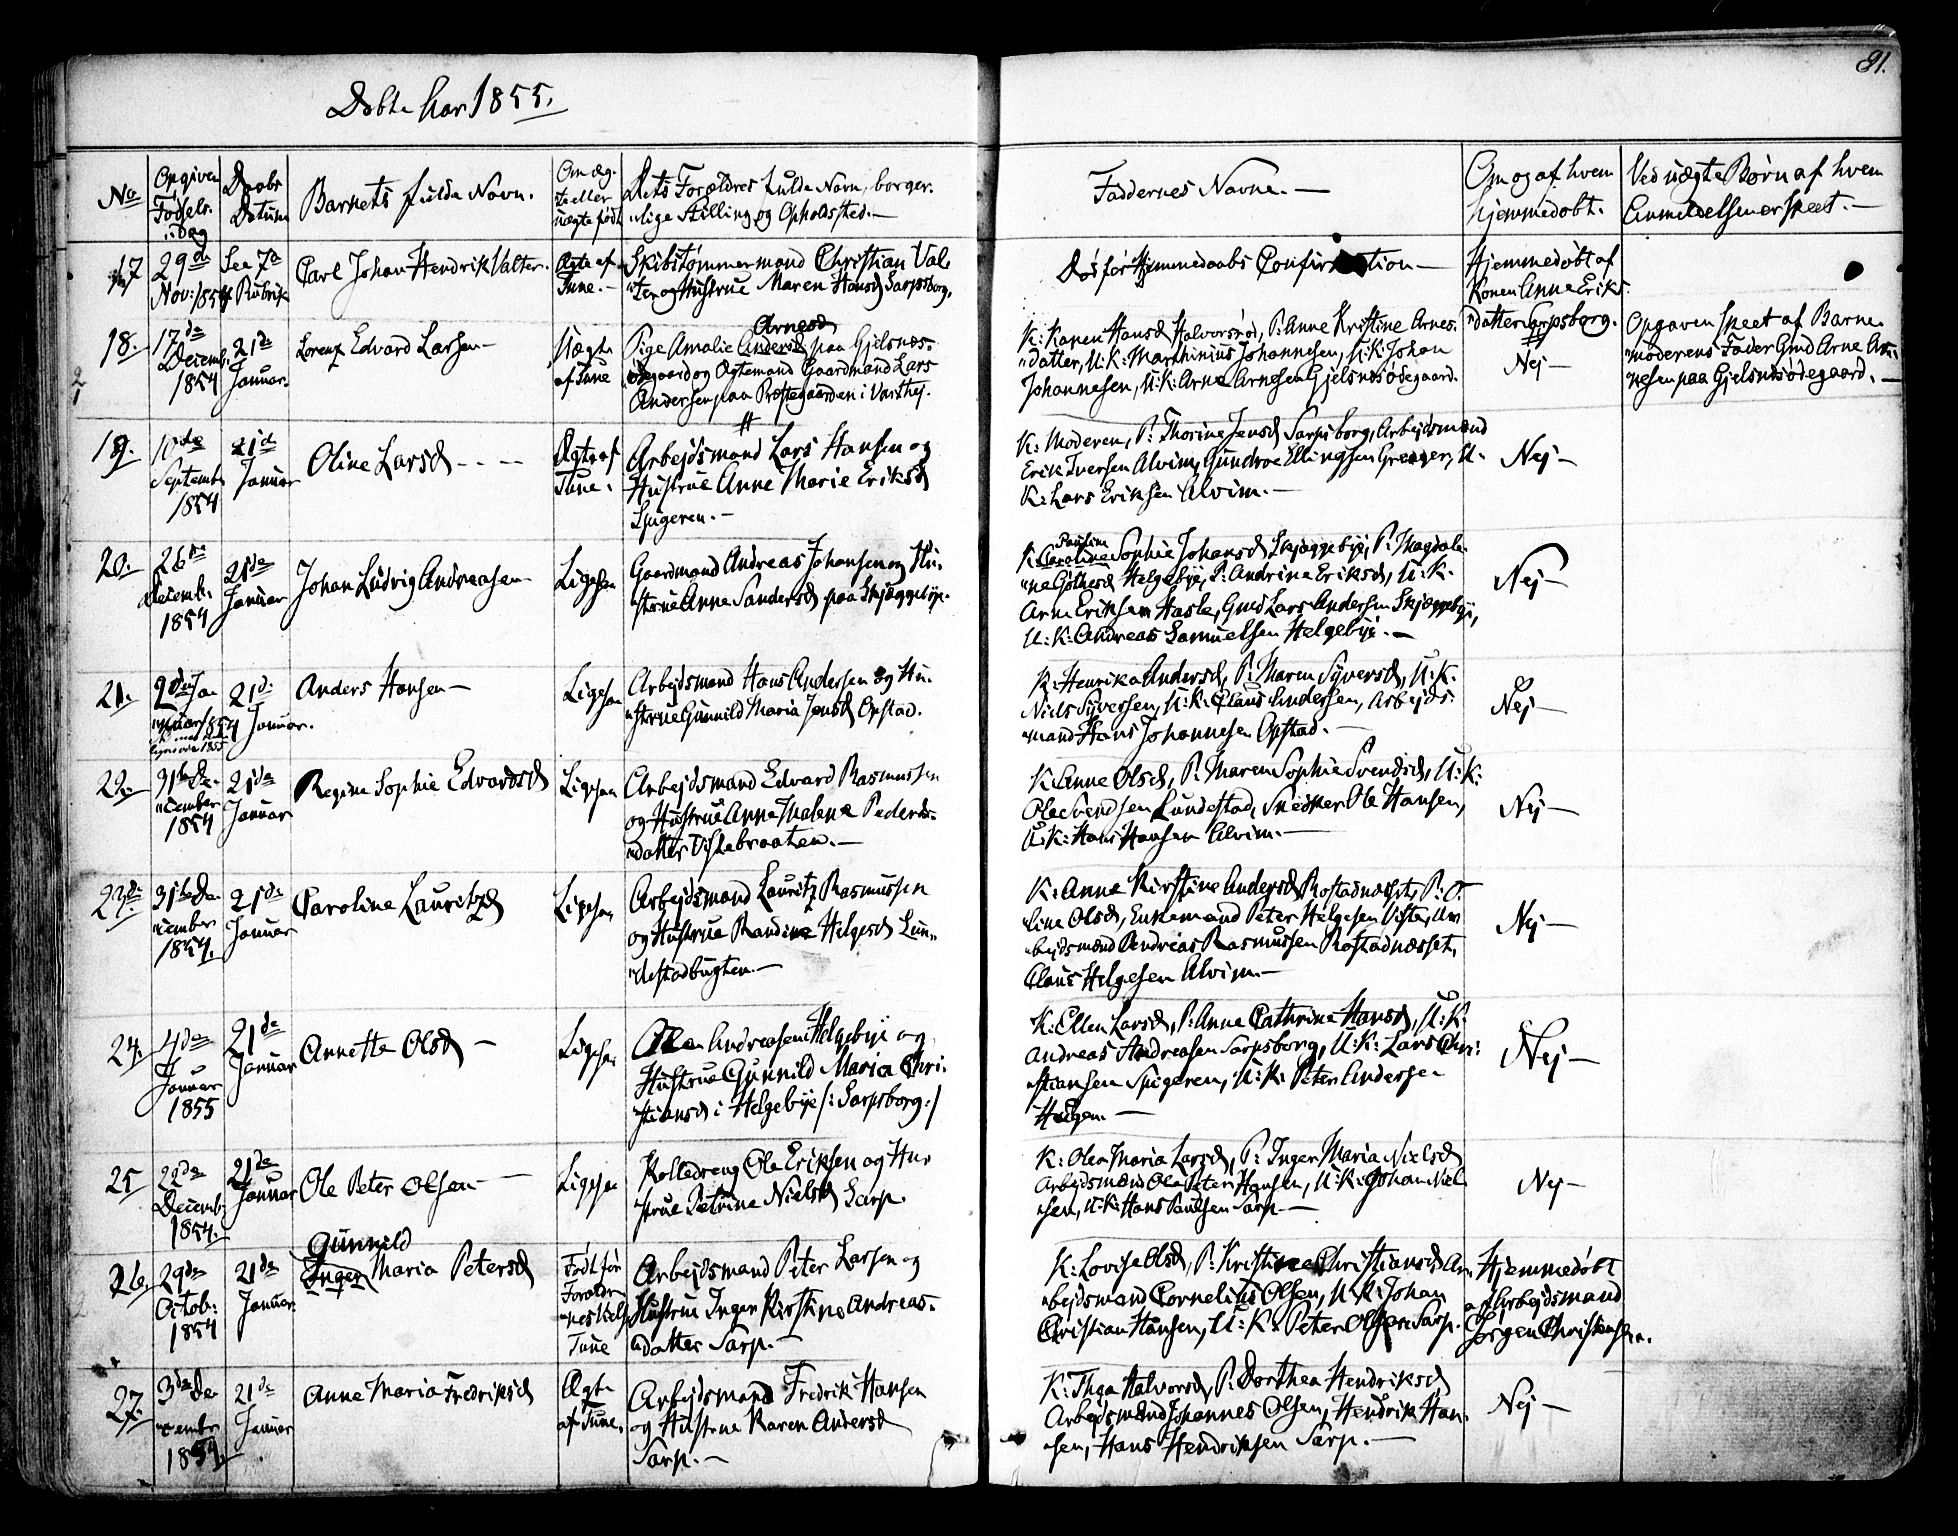 91.
Døbte har 1855.
No
Opgiven Fødsels-Dag
Daabs Datum
Barnets fulde Navn.
Om ægte eller uægte født
Dets Forældres fulde Navn, borgerlige Stilling og Opholdsted.—
Faddernes Navne.—
Om og af hvem hjemmedøbt.
Ved uægte Børn af hvem Anmeldelsen er skeet.—
17
29de Nov: 1854
See 7de Rubrik
Carl Johan Hendrik Valter.
Ægte af Tune.—
Skibstømmermand Christian Valter og Hustrue Maren Hansd Sarpsborg.
Hjemmedaabs Confirmation—
Hjemmedøbt af
Konen Anne Eriks-
datter Sarpsborg.
18.
17de Decemb: 1854
21de Januar.
Lorenz Edvard Larsen—
Uægte af Tune
Arnesd
Pige Amalie Andersd paa Gjelsnæs-
ødegaard og Ægtemand Gaardmand Lars
Andersen paa Præstegaarden i Varthej.
K: Karen Hansd Halvorsrød, P: Anne Kristine Arnes-
datter, U: K: Marthinius Johannesen, U: K: Johan
Johannesen, U: K: Arne Arnesen Gjelsnæsødegaard.
Nej—
Opgaven skeet af Barne-
moderens Fader Gmd Arne Ar-
nesen paa Gjelsnæsødegaard.—
19.
10de Septemb 1854
21d Januar
Oline Larsd - - - -
Ægte af Tune.
Arbejdsmand Lars Hansen og
Hustrue Anne Marie Eriksd
Spigeren.—
K: Moderen, P: Thorine Jensd Sarpsborg, Arbejdsmand
Erik Iversen Alvim, Gundroe Ellingsen Greaker, U-
K: Lars Eriksen Alvim.—
Nej—
20.
26de Decemb. 1854
21de Januar
Johan Ludvig Andreasen
Ligesaa
Gaardmand Andreas Johansen og Hu-
strue Anne Sandersd paa Skjæggebye.
Pauline
K: Caroline Sophie Johansd Skjæggebye, P: Magdale-
ne Helgebye, P: Andrine Eriksd, U: K:
Arne Eriksen Hasle, Gmd Lars Andersen Skjæggebye,
U: K: Andreas Samuelsen Helgebye.—
Nej—
21.
2den Januar 1854
21de Januar.
Anders Hansen—
Ligesaa
Arbejdsmand Hans Andersen og Hu-
strue Gunnild Maria Jensd Opstad.
K: Henrika Andersd, P: Maren Syversd, U: K.
Niels Syversen, U: K: Claus Andersen, Arbejds-
mand Hans Johannesen Opstad.—
Nej—
22.
31te December 1854
21de Januar
Regine Sophie Edvardsd
Ligesaa
Arbejdsmand Edvard Rasmussen
og Hustrue Anne Malene Peders-
datter Vistebraaten.—
K: Anne Olsd, P: Maren Sophie Svendsd, U: K:
Ole Svendsen Lundestad, Snedker Ole Hansen,
U: K: Hans Hansen Alvim.—
Nej—
23de.
31te December 1854.
21de Januar
Caroline Lauritzd
Ligesaa
Arbejdsmand Lauritz Rasmussen
og Hustrue Randine Helgesd Lun-
destadbugten.—
K: Anne Kirstine Andersd Rostadnæsset, P: O-
line Olsd, Enkemand Peter Helgesen Viste, Ar-
bejdsmand Andreas Rasmussen Rostadnæsset,
Claus Helgesen Alvim.—
Nej—
24.
4de Januar 1855
21de Januar
Annette Olsd—
Ligesaa
Ole Andreasen Helgebye og
Hustrue Gunnild Maria Chri-
stiansd i Helgebye /: Sarpsborg :/
K: Ellen Larsd, P: Anne Cathrine Hansd, U: K:
Andreas Andreasen Sarpsborg, U: K: Lars Chri-
stiansen Spigeren, U: K: Peter Andersen
Helgen.—
Nej—
25
22de Decemb: 1854.
21de Januar
Ole Peter Olsen—
Ligesaa
Ole Eriksen og Hu-
strue Petrine Nielsd Sarp.
K: Olea Maria Larsd, P: Inger Maria Nielsd
Arbejdsmand Ole Peter Hansen, U: K: Johan Niel-
sen, U: K: Hans Paulsen Sarp—
Nej—
26.
29de Octob: 1854
21de Januar.
Gunnild
Inger Maria Petersd
Født før Forældrenes
Tune
Arbejdsmand Peter Larsen og
Hustrue Inger Kirstine Andreas-
datter Sarp.—
K: Lovise Olsd, P: Kristine Christiansd Ar-
bejdsmand Cornelius Olsen, U: K: Johan
Christian Hansen, U: K: Peter Olsen Sarp.
Hjemmedøbt
af Arbejdsmand
Jørgen Christensen.
27.
3de December 1854.
21de Januar
Anne Maria Fredriksd
Ægte af Tune.
Arbejdsmand Fredrik Hansen
og Hustrue Karen Andersd
Sarp.—
K: Inga Halvorsd, P: Dorthea Hendriksd
Arbejdsmand Johannes Olsen, Hendrik Han-
sen, Hans Hendriksen Sarp.—
Nej—